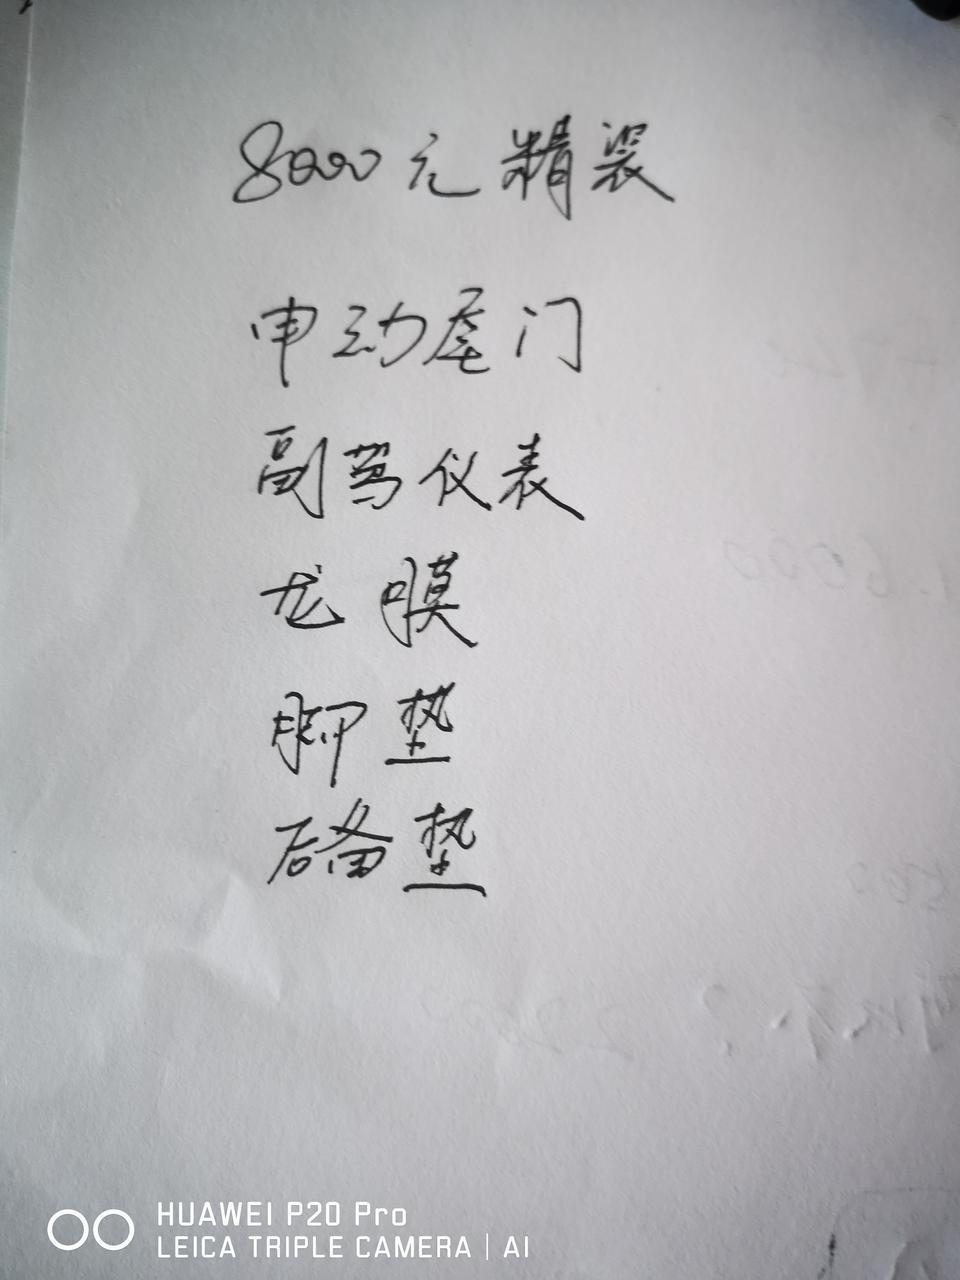 8000元精装
电动尾门
副驾仪表
龙膜
脚垫
后备垫
HUAWEI P20 Pro
LEICA TRIPLE CAMERA | AI